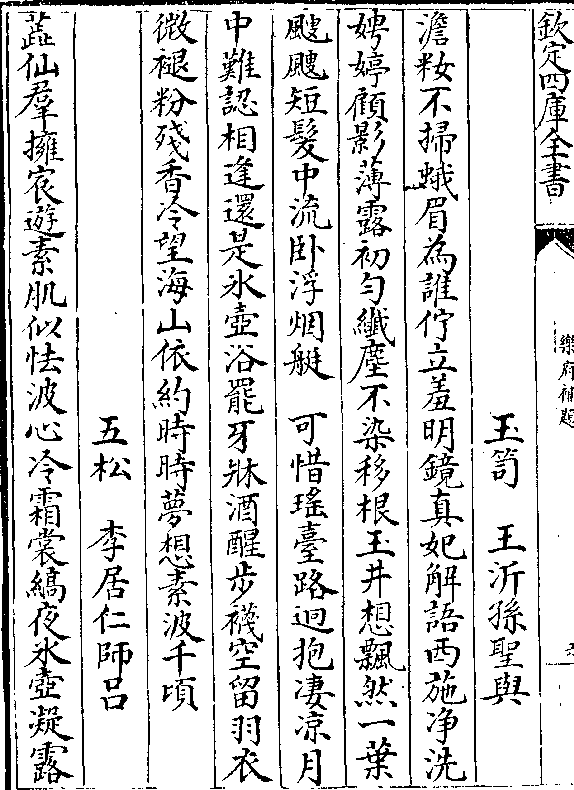 欽定四庫全書
樂府補題
玉笥　王沂孫聖與
澹粧不掃蛾眉為誰佇立羞明鏡真妃解語西施淨洗
娉婷顧影薄露初勻纖塵不染移根玉井想飄然一葉
颼颼短髮中流卧浮烟艇　可惜瑤臺路迥抱凄凉月
中難認相逢還是氷壺浴罷牙牀酒醒步襪空留羽衣
微褪粉殘香冷望海山依約時時夢想素波千頃
五松　李居仁師吕
蕋仙羣擁宸遊素肌似怯波心冷霜裳縞夜氷壺凝露